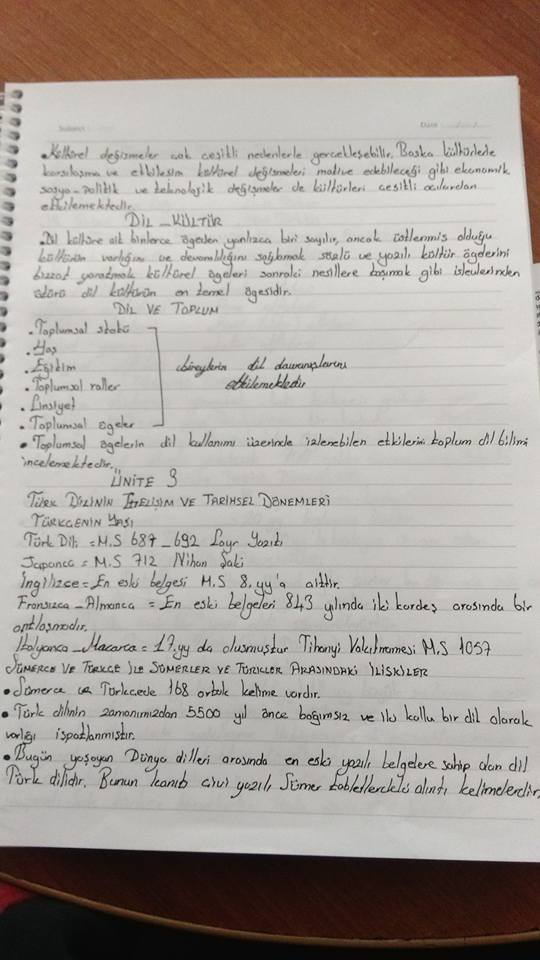 Subject : ........
Date : ..../..../....
• Kültürel değişmeler çok çeşitli nedenlerle gerçekleşebilir. Başka kültürlerle
karşılaşma ve etkileşim kültürel değişmeleri motive edebileceği gibi ekonomik
sosyo-politik ve teknolojik değişmeler de kültürleri çeşitli açılardan
etkilemektedir.
DİL - KÜLTÜR
• Dil kültüre ait binlerce ögeden yanlızca biri sayılır, ancak üstlenmiş olduğu
kültürün varlığını ve devamlılığını sağlamak sözlü ve yazılı kültür ögelerini
bizzat yaratmak kültürel ögeleri sonraki nesillere taşımak gibi işlevlerinden
ötürü dil kültürün en temel ögesidir.
DİL VE TOPLUM
• Toplumsal statü
• Yaş
• Eğitim bireylerin dil davranışlarını
• Toplumsal roller etkilemektedir
• Cinsiyet
• Toplumsal ögeler
• Toplumsal ögelerin dil kullanımı üzerinde izlenebilen etkilerini toplum dil bilimi
incelemektedir.
ÜNİTE 3
TÜRK DİLİNİN GELİŞİM VE TARİHSEL DÖNEMLERİ
TÜRKÇENİN YAŞI
Türk Dili = M.S 687 - 692 Çoyr Yazıtı
Japonca = M.S 712 Nihon Şoki
İngilizce = En eski belgesi M.S 8. yy'a aittir.
Fransızca - Almanca = En eski belgeleri 843 yılında iki kardeş arasında bir
antlaşmadır.
İtalyanca - Macarca = 17.yy da oluşmuştur Tihanyi Vakıfnamesi M.S 1057
SÜMERCE VE TÜRKÇE İLE SÜMERLER VE TÜRKLER ARASINDAKİ İLİŞKİLER
• Sümerce ve Türkçede 168 ortak kelime vardır.
• Türk dilinin zamanımızdan 5500 yıl önce bağımsız ve iki kollu bir dil olarak
varlığı ispatlanmıştır.
• Bugün yaşayan Dünya dilleri arasında en eski yazılı belgelere sahip olan dil
Türk dilidir. Bunun kanıtı çivi yazılı Sümer tabletlerdeki alıntı kelimelerdir.